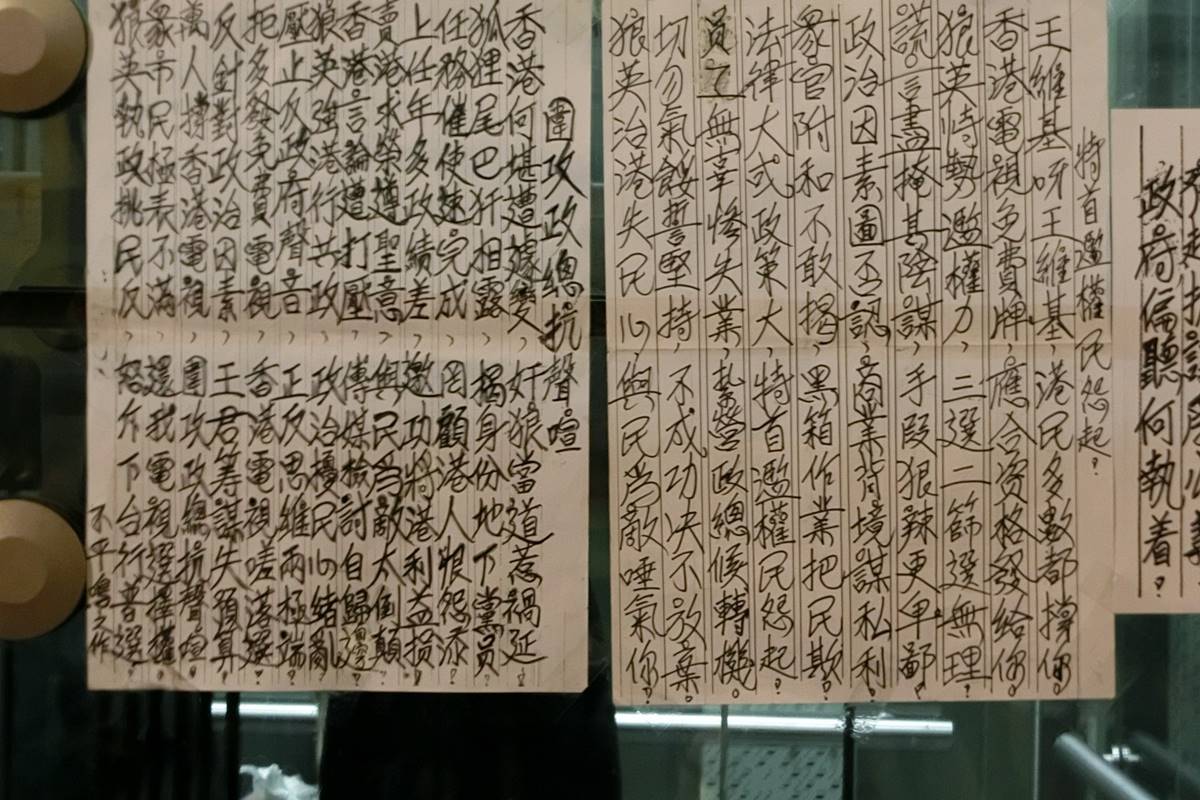 政府偏聽何執着?
特首濫權民怨起?
王維基呀王維基,港民多數都撐你。
香港電視免費牌,應合資格發給你。
狼英恃勢濫權力,三選二篩選無理。
謊言盡掩其陰謀,手段狠辣更卑鄙。
政治因素圖否認,商業背境謀私利。
眾官附和不敢揭,黑箱作業把民欺。
法律大或政策大,特首濫權民怨起。
員工無辜慘失業,蟄營政總候轉機。
切勿氣餒誓堅持,不成功決不放棄。
狼英治港失民心,與民為敵唾氣你。
圍攻政總抗聲喧
香港何堪遭據變,奸狼當道惹禍延?
狐狸尾巴狂相露,揭身份地下黨員?
任務催使速完成,罔顧港人恨怨添?
上任年多政績差,邀功將港利益損?
賣港求榮遵聖意,與民為敵太倒顛?
香港言論遭打壓,傳媒檢討自歸邊?
狼英強港行共政,政治擾民心緒亂?
壓止反政府聲音,正反思維兩極端?
拒多發免費電視,香港電視嗟落選?
反針對政治因素,王君籌謀失預算?
萬人撐香港電視,圍攻政總抗聲喧?
眾市民極表不滿,還我電視選擇權?
狼英執政挑民反,怒斥下台行普選?
不平鳴之作